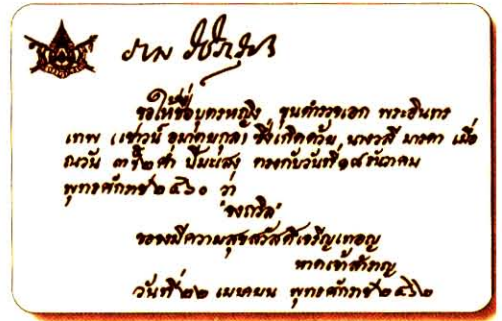 ราม วชิราวุธ
ขอให้ชื่อบุตรหญิง ขุนตำรวจเอก พระอินทร
เทพ (เชาวน์ อมาตยกุล) ซึ่งเกิดด้วย นางวลี มารดา เมื่อ
ณวัน ค่ำ ปีมะเส็ง ตรงกับวันที่ ๑๘ ธันวาคม
พุทธศักราช ๒๔๖๐ ว่า
"
ขอจงมีความสุขสวัสดิ์เจริญเทอญ
วันที่ ๒๒ เมษายน พุทธศักราช ๒๔๖๒